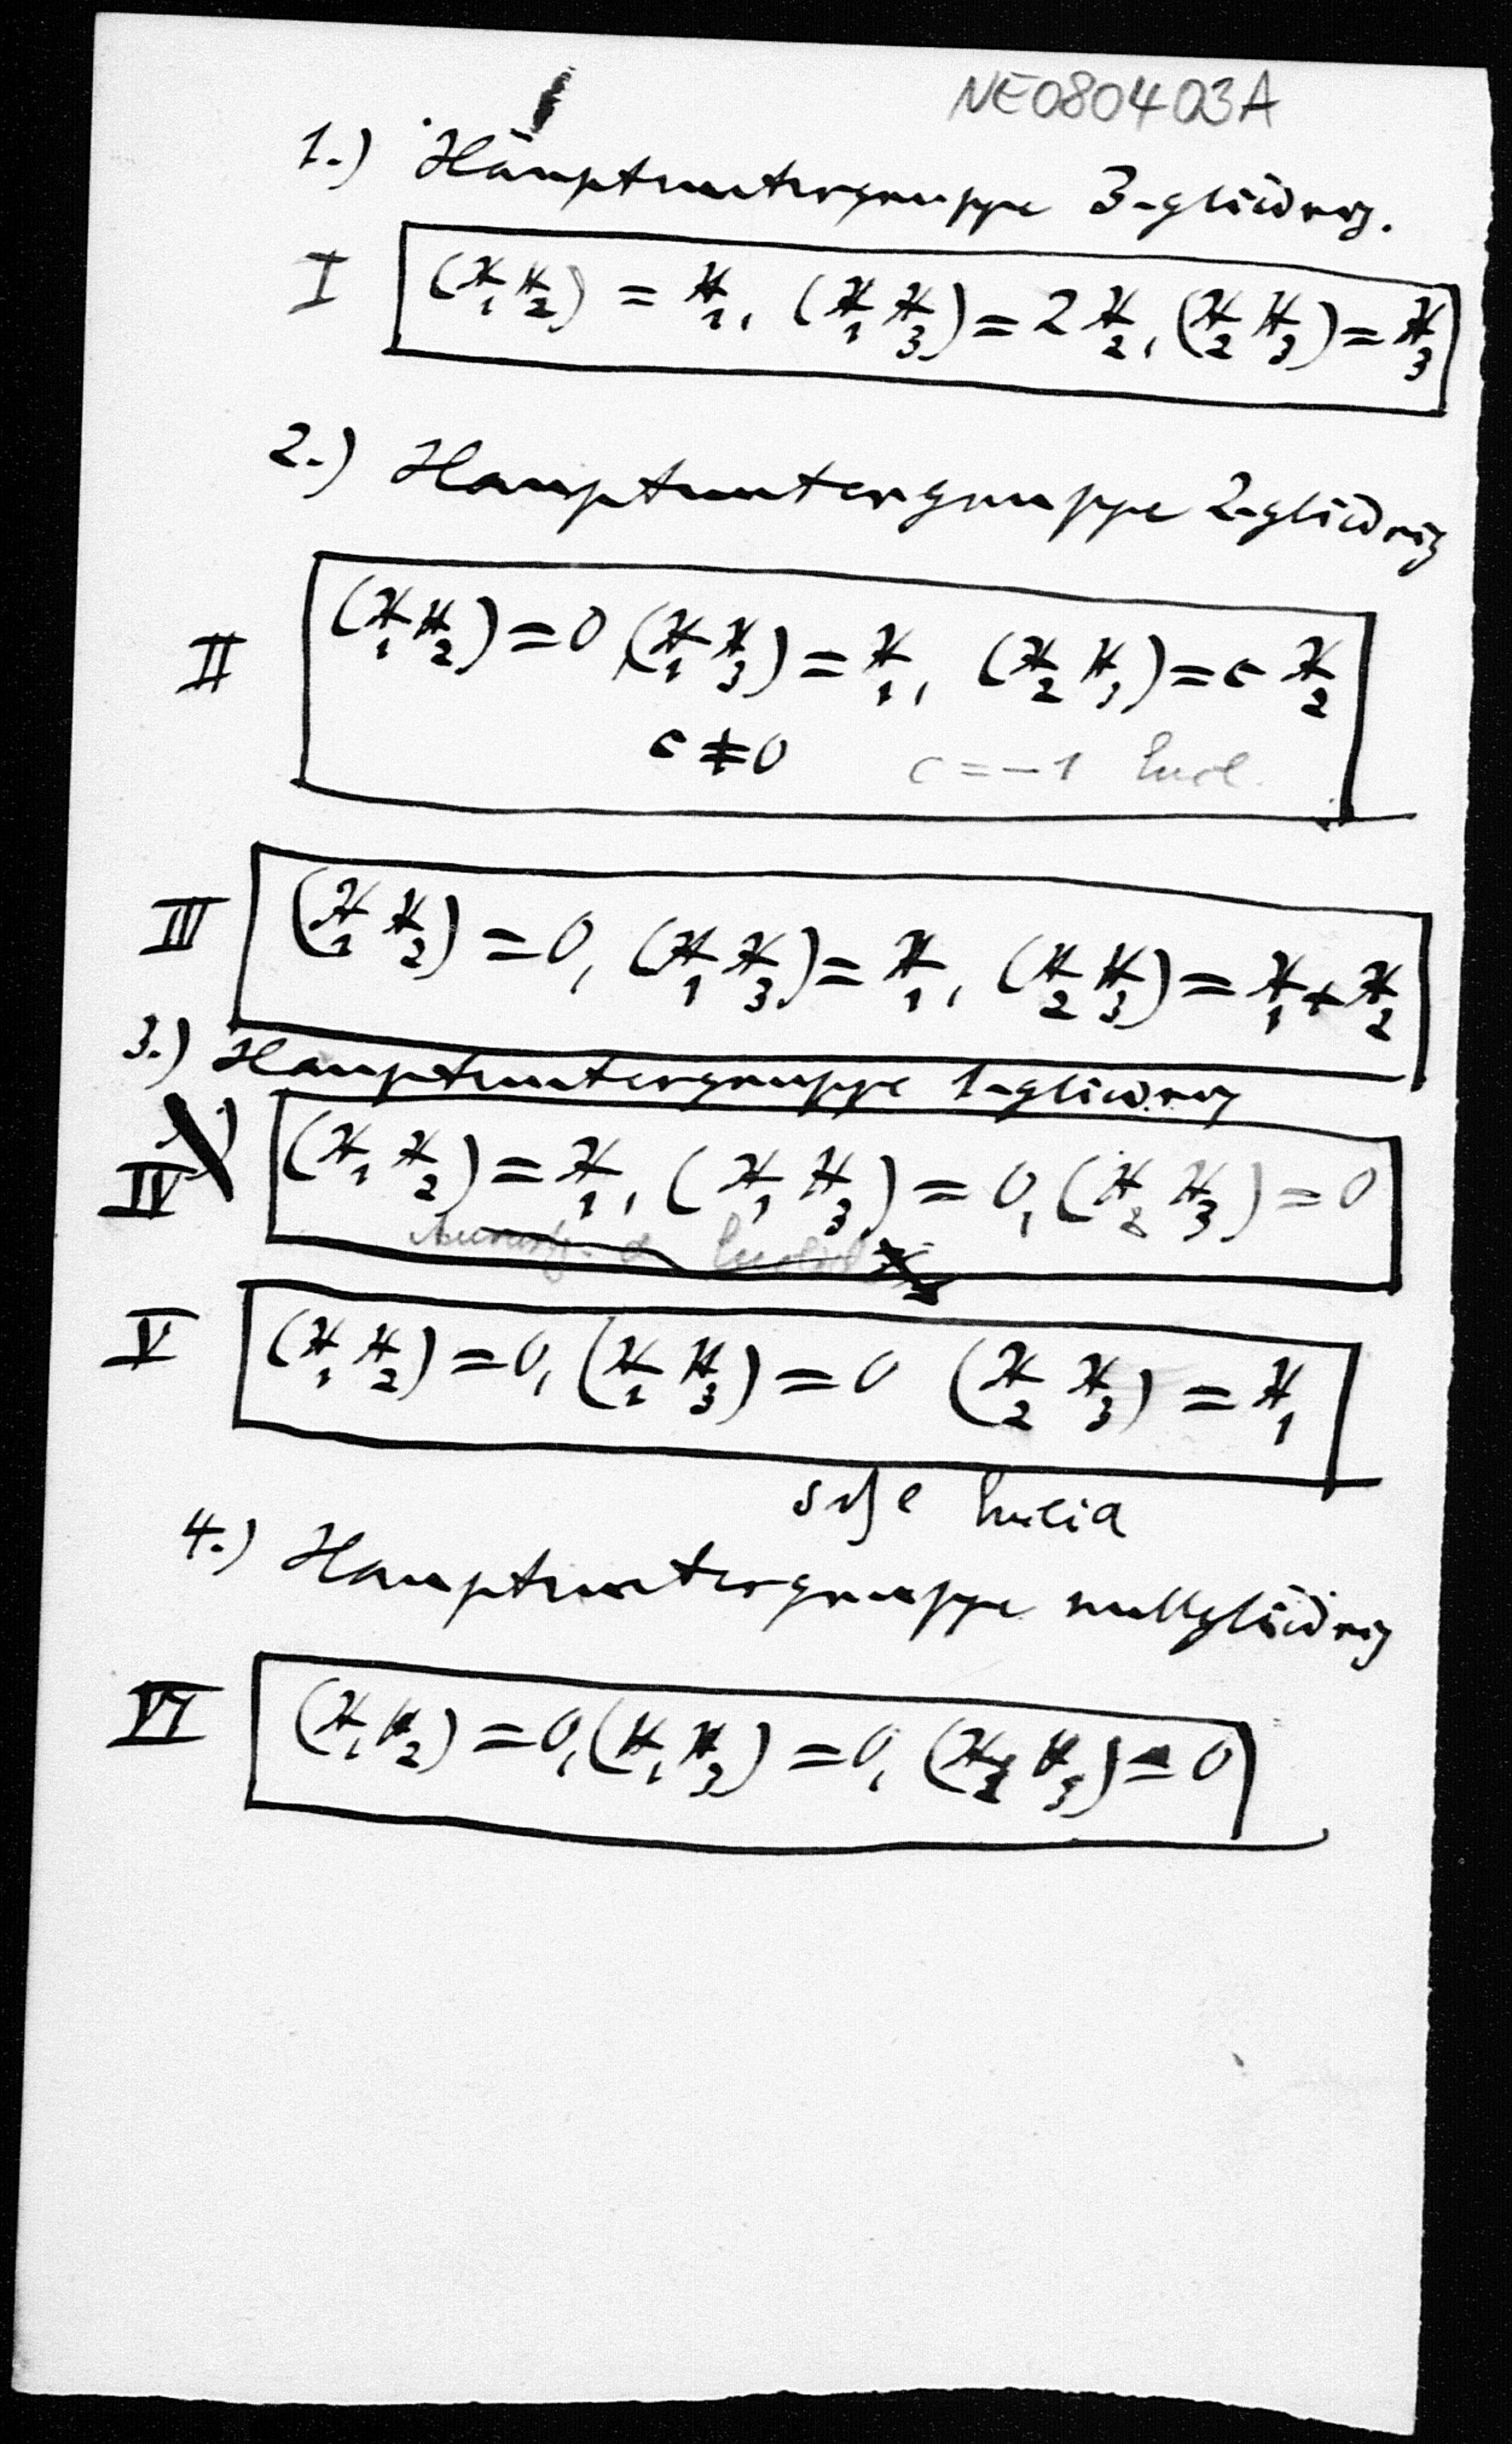 NE080403A
1.) Hauptuntergruppe 3-gliedrig.
I (X₁X₂) = X₁, (X₁X₃) = 2X₂, (X₂X₃) = X₃
2.) Hauptuntergruppe 2-gliedrig
II (X₁X₂) = 0, (X₁X₃) = X₁, (X₂X₃) = c X₂
c ≠ 0 c = -1
III (X₁X₂) = 0, (X₁X₃) = X₁, (X₂X₃) = X₁ + X₂
3.) Hauptuntergruppe 1-gliedrig
IV (X₁X₂) = X₁, (X₁X₃) = 0, (X₂X₃) = 0
V (X₁X₂) = 0, (X₁X₃) = 0 (X₂X₃) = X₁
4.) Hauptuntergruppe nullgliedrig
VI (X₁X₂) = 0, (X₁X₃) = 0, (X₂X₃) = 0